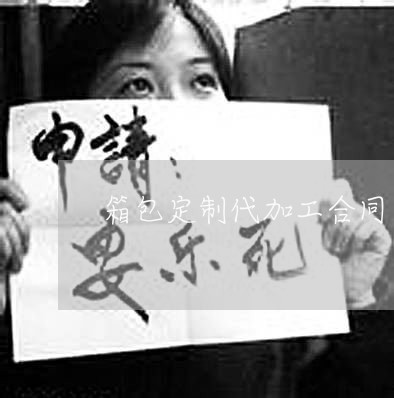 申請：
箱包定制代加工合同
安乐死